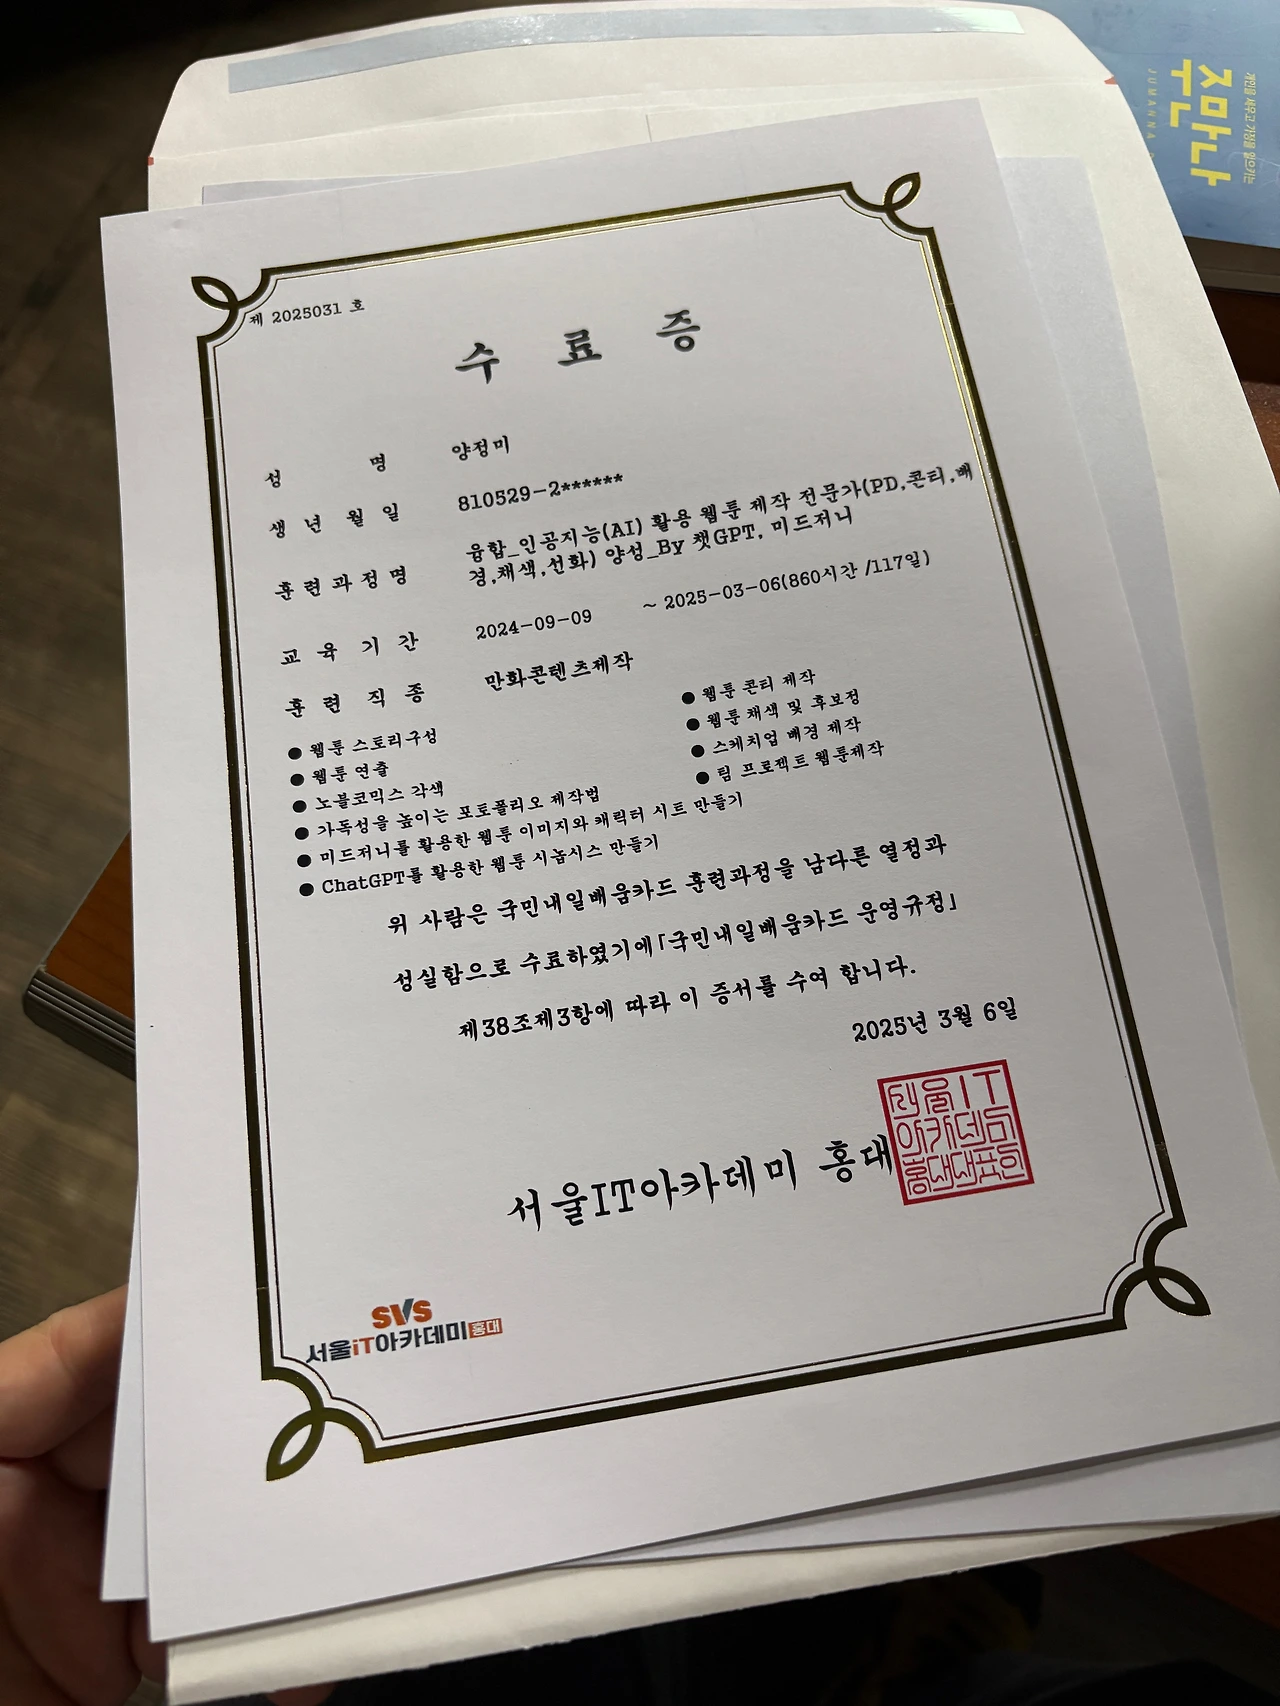 개인을 세우고 가정을 일으키는
주만나
JUMANNA
제 2025031 호
수 료 증
성 명 양정미
생 년 월 일 810529-2******
훈 련 과 정 명 융합_인공지능(AI) 활용 웹툰 제작 전문가(PD,콘티,배
경,채색,선화) 양성_By 챗GPT, 미드저니
교 육 기 간 2024-09-09 ~ 2025-03-06(860시간 /117일)
훈 련 직 종 만화콘텐츠제작
● 웹툰 스토리구성 ● 웹툰 콘티 제작
● 웹툰 연출 ● 웹툰 채색 및 후보정
● 노블코믹스 각색 ● 스케치업 배경 제작
● 가독성을 높이는 포토폴리오 제작법 ● 팀 프로젝트 웹툰제작
● 미드저니를 활용한 웹툰 이미지와 캐릭터 시트 만들기
● ChatGPT를 활용한 웹툰 시놉시스 만들기
위 사람은 국민내일배움카드 훈련과정을 남다른 열정과
성실함으로 수료하였기에「국민내일배움카드 운영규정」
제38조제3항에 따라 이 증서를 수여 합니다.
2025년 3월 6일
서울IT아카데미 홍대
서울IT
아카데미
홍대대표인
SVS
서울iT아카데미 홍대